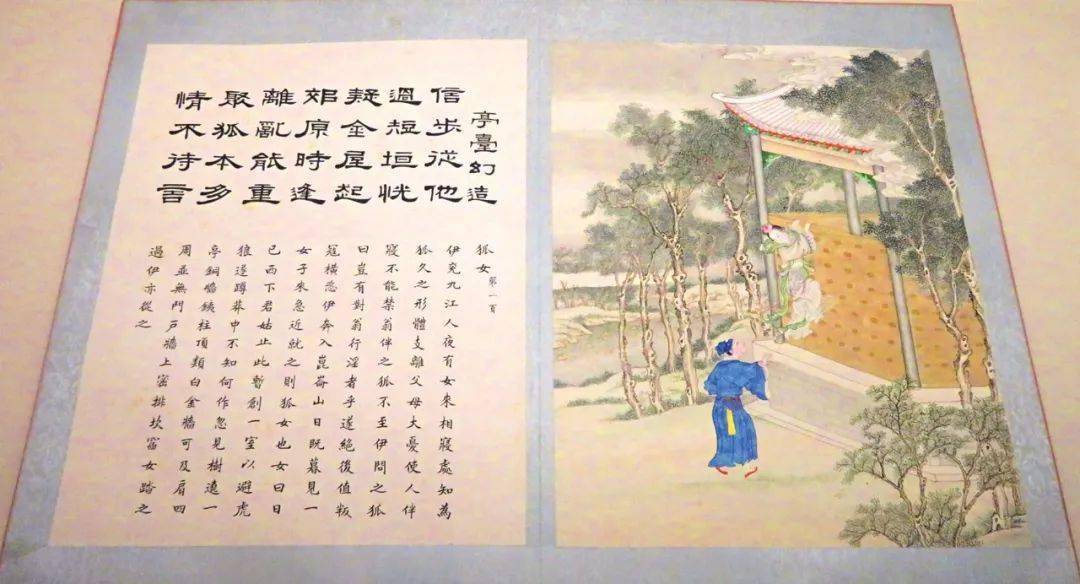 亭臺幻造
信步從他
過短垣恍
疑金屋起
郊原時逢
離亂能重
聚狐本多
情不待言
狐女 第一百
伊究九江人夜有女來相寢處知為
狐久之形體支離父母大憂使人伴
寢不能禁翁伴之狐不至伊問之狐
曰豈有對翁行淫者乎遂絕後值叛
寇橫恣伊奔入崑崙山日既暮見一
女子來急近就之則狐女也女曰日
已西下君姑止此暫創一室以避虎
狼遂蹲莽中不知何作忽見樹邊一
亭銅牆銕柱頂類白金牆可及肩四
周並無門戶牆上密排坎窞女踏之
過伊亦從之